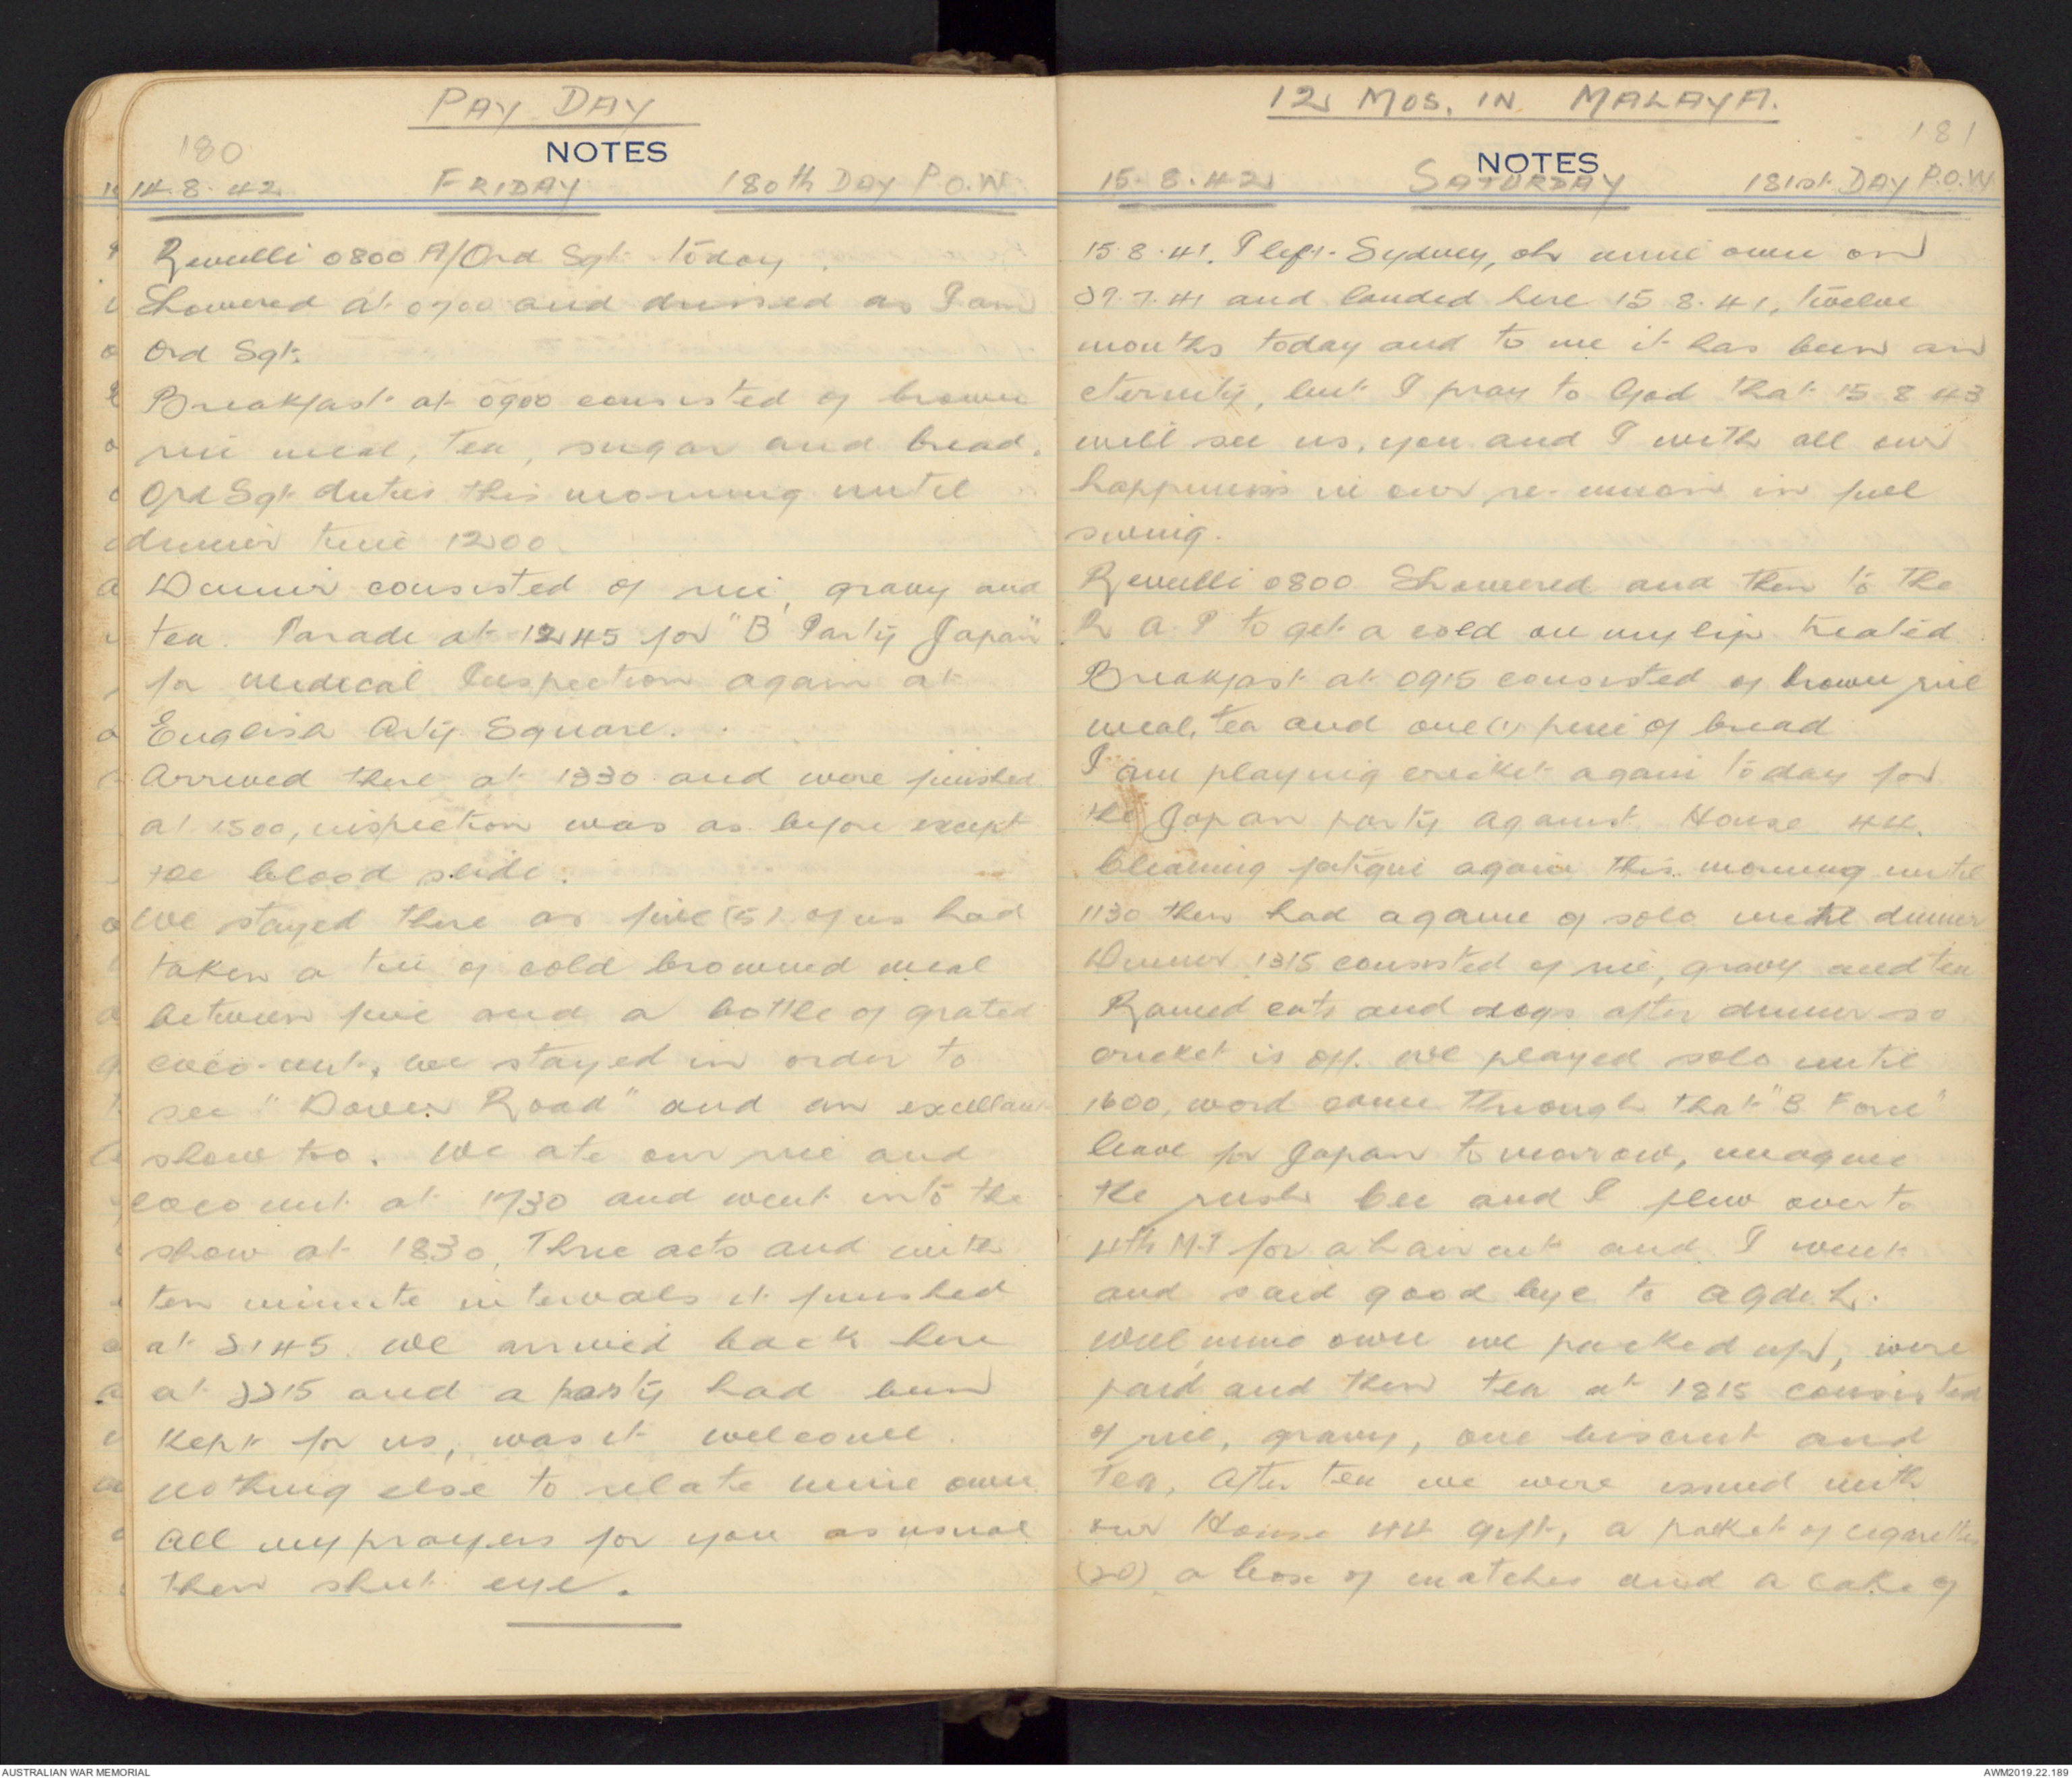 PAY DAY
180
NOTES
14.8.42 FRIDAY 180th DAY P.O.W.
Reveille 0800 A/Ord Sgt today.
Showered at 0700 and dressed as I am
Ord Sgt.
Breakfast at 0900 consisted of brown
rice meal, tea, sugar and bread.
Ord Sgt duties this morning until
dinner time 1200.
Dinner consisted of rice, gravy and
tea. Parade at 1245 for "B Party Japan"
for medical Inspection again at
English Arty Square.
Arrived there at 1330 and were finished
at 1500, inspection was as before except
the blood slide.
We stayed there as five (5) of us had
taken a tin of cold browned meal
between five and a bottle of grated
coco-nut, we stayed in order to
see "Dover Road" and an excellant
show too. We ate our rice and
coconut at 1730 and went into the
show at 1830, Three acts and with
ten minute intervals it finished
at 2145. We arrived back here
at 2215 and a pasty had been
kept for us, was it welcome.
nothing else to relate mine own
All my prayers for you as usual
then shut eye.
12 MOS. IN MALAYA.
181
NOTES
15.8.42 SATURDAY 181st DAY P.O.W.
15.8.41. I left Sydney, oh mine own on
29.7.41 and landed here 15.8.41, twelve
months today and to me it has been an
eternity, but I pray to God that 15 8 43
will see us, you and I with all our
happiness in our re-union in full
swing.
Reveille 0800 Showered and then to the
R A P to get a cold on my lip treated
Breakfast at 0915 consisted of brown rice
meal, tea and one (1) piece of bread
I am playing cricket again today for
the Japan party against House 44.
Cleaning fatigue again this morning until
1130 then had a game of solo until dinner
Dinner 1315 consisted of rice, gravy and tea
Rained cats and dogs after dinner so
cricket is off. We played solo until
1600, word came through that "B Force"
leave for Japan tomorrow, imagine
the rush and I flew over to
4th M.T for a haircut and I went
and said good bye to
Well mine own we packed up, were
paid and then tea at 1815 consisted
of rice, gravy, one biscuit and
tea, After tea we were issued with
our House 44 gift, a packet of cigarettes
(20) a box of matches and a cake of
AUSTRALIAN WAR MEMORIAL
AWM2019.22.189